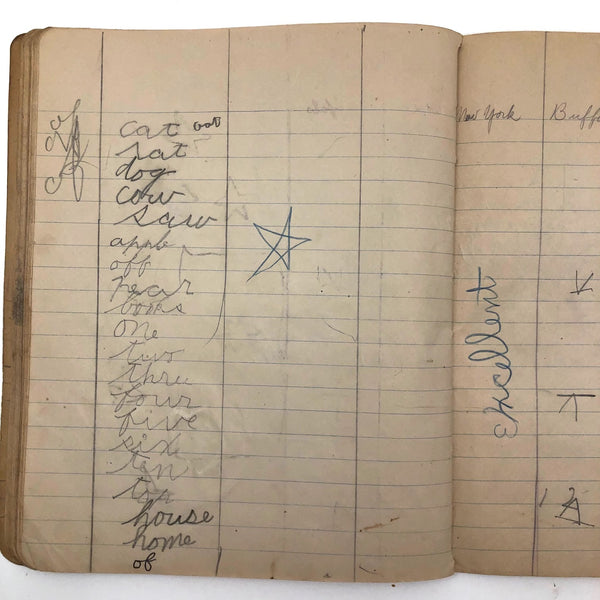 cat oat
rat
dog
cow
saw
apple
off
rear
one
two
three
four
five
six
ten
house
home
of
New York Buff
Excellent